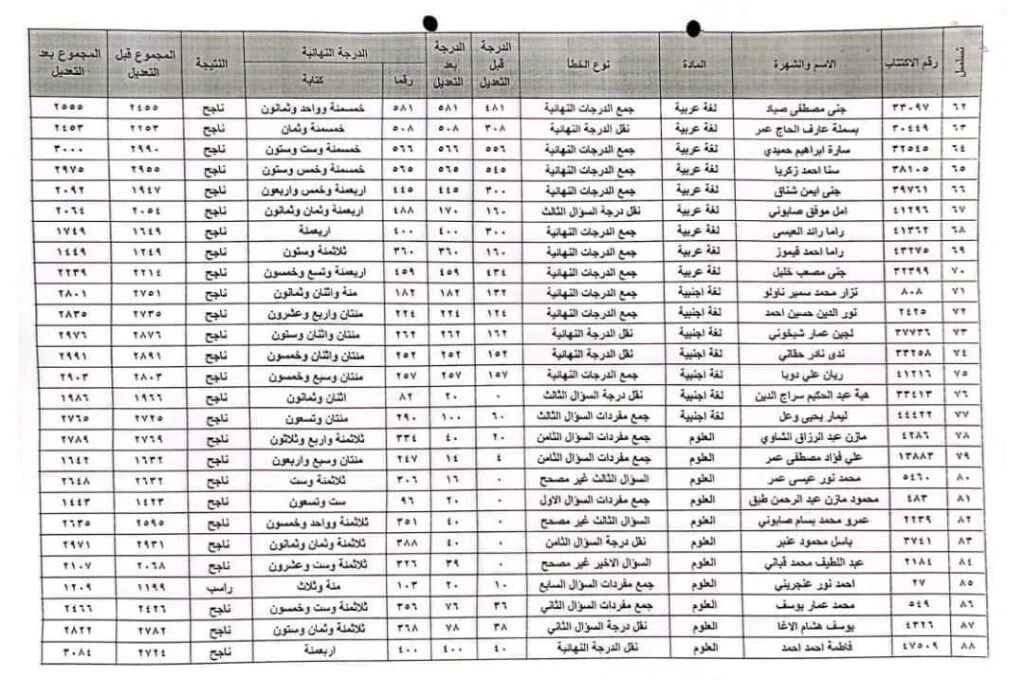 تسلسل | رقم الاكتتاب | الاسم والشهرة | المادة | نوع الخطا | الدرجة قبل التعديل | الدرجة بعد التعديل | الدرجة النهائية رقما | الدرجة النهائية كتابة | النتيجة | المجموع قبل التعديل | المجموع بعد التعديل
٦٢ | ٣٣٠٩٧ | جنى مصطفى صياد | لغة عربية | جمع الدرجات النهائية | ٤٨١ | ٥٨١ | ٥٨١ | خمسمئة وواحد وثمانون | ناجح | ٢٤٥٥ | ٢٥٥٥
٦٣ | ٣٠٤٤٩ | بسملة عارف الحاج عمر | لغة عربية | نقل الدرجة النهائية | ٣٠٨ | ٥٠٨ | ٥٠٨ | خمسمئة وثمان | ناجح | ٢٢٥٣ | ٢٤٥٣
٦٤ | ٣٢٥٤٥ | سارة ابراهيم حميدي | لغة عربية | جمع الدرجات النهائية | ٥٥٦ | ٥٦٦ | ٥٦٦ | خمسمئة وست وستون | ناجح | ٢٩٩٠ | ٣٠٠٠
٦٥ | ٣٨١٠٥ | سنا احمد زكريا | لغة عربية | جمع الدرجات النهائية | ٥٤٥ | ٥٦٥ | ٥٦٥ | خمسمئة وخمس وستون | ناجح | ٢٩٥٥ | ٢٩٧٥
٦٦ | ٣٩٧٦١ | جنى ايمن شناق | لغة عربية | جمع الدرجات النهائية | ٣٠٠ | ٤٤٥ | ٤٤٥ | اربعمئة وخمس واربعون | ناجح | ١٩٤٧ | ٢٠٩٢
٦٧ | ٤١٢٩٦ | امل موفق صابوني | لغة عربية | نقل درجة السؤال الثالث | ١٦٠ | ١٧٠ | ٤٨٨ | اربعمئة وثمان وثمانون | ناجح | ٢٠٥٤ | ٢٠٦٤
٦٨ | ٤١٣٦٢ | راما رائد العيسى | لغة عربية | جمع الدرجات النهائية | ٣٠٠ | ٤٠٠ | ٤٠٠ | اربعمئة | ناجح | ١٦٤٩ | ١٧٤٩
٦٩ | ٤٣٢٧٥ | راما احمد قيموز | لغة عربية | جمع الدرجات النهائية | ١٦٠ | ٣٦٠ | ٣٦٠ | ثلاثمئة وستون | ناجح | ١٢٤٩ | ١٤٤٩
٧٠ | ٣٢٣٩٩ | جنى مصعب خليل | لغة عربية | جمع الدرجات النهائية | ٤٣٤ | ٤٥٩ | ٤٥٩ | اربعمئة وتسع وخمسون | ناجح | ٢٢١٤ | ٢٢٣٩
٧١ | ٨٠٨ | نزار محمد سمير ناولو | لغة اجنبية | جمع الدرجات النهائية | ١٣٢ | ١٨٢ | ١٨٢ | مئة واثنان وثمانون | ناجح | ٢٧٥١ | ٢٨٠١
٧٢ | ٢٤٢٥ | نور الدين حسين احمد | لغة اجنبية | جمع الدرجات النهائية | ١٢٤ | ٢٢٤ | ٢٢٤ | مئتان واربع وعشرون | ناجح | ٢٧٣٥ | ٢٨٣٥
٧٣ | ٣٧٧٣٦ | لجين عمار شيخوني | لغة اجنبية | نقل الدرجة النهائية | ١٦٢ | ٢٦٢ | ٢٦٢ | مئتان واثنان وستون | ناجح | ٢٨٧٦ | ٢٩٧٦
٧٤ | ٣٣٢٥٨ | ندى نادر حقاني | لغة اجنبية | نقل الدرجة النهائية | ١٥٢ | ٢٥٢ | ٢٥٢ | مئتان واثنان وخمسون | ناجح | ٢٨٩١ | ٢٩٩١
٧٥ | ٤١٢١٦ | ريان علي دوبا | لغة اجنبية | جمع الدرجات النهائية | ١٥٧ | ٢٥٧ | ٢٥٧ | مئتان وسبع وخمسون | ناجح | ٢٨٠٣ | ٢٩٠٣
٧٦ | ٣٣٤١٣ | هبة عبد الحكيم سراج الدين | لغة اجنبية | نقل درجة السؤال الثالث | ٠ | ٢٠ | ٨٢ | اثنان وثمانون | ناجح | ١٩٦٦ | ١٩٨٦
٧٧ | ٤٤٤٢٢ | ليمار يحيى وعل | لغة اجنبية | جمع مفردات السؤال الثالث | ٦٠ | ١٠٠ | ٢٩٠ | مئتان وتسعون | ناجح | ٢٧٢٥ | ٢٧٦٥
٧٨ | ٤٢٨٦ | مازن عبد الرزاق الشاوي | العلوم | جمع مفردات السؤال الثامن | ٢٠ | ٤٠ | ٣٣٤ | ثلاثمئة واربع وثلاثون | ناجح | ٢٧٦٩ | ٢٧٨٩
٧٩ | ١٣٨٨٣ | علي فؤاد مصطفى عمر | العلوم | جمع مفردات السؤال الثامن | ٤ | ١٤ | ٢٤٧ | مئتان وسبع واربعون | ناجح | ١٦٣٢ | ١٦٤٢
٨٠ | ٥٤٦٠ | محمد نور عيسى عمر | العلوم | السؤال الثالث غير مصحح | ٠ | ١٦ | ٣٠٦ | ثلاثمئة وست | ناجح | ٢٦٣٢ | ٢٦٤٨
٨١ | ٤٨٣ | محمود مازن عبد الرحمن طبق | العلوم | جمع مفردات السؤال الاول | ٠ | ٢٠ | ٩٦ | ست وتسعون | ناجح | ١٤٢٣ | ١٤٤٣
٨٢ | ٢٢٣٩ | عمرو محمد بسام صابوني | العلوم | السؤال الثالث غير مصحح | ٠ | ٤٠ | ٣٥١ | ثلاثمئة وواحد وخمسون | ناجح | ٢٥٩٥ | ٢٦٣٥
٨٣ | ٣٧٤١ | باسل محمود عنبر | العلوم | نقل درجة السؤال الثامن | ٠ | ٤٠ | ٣٨٨ | ثلاثمئة وثمان وثمانون | ناجح | ٢٩٣١ | ٢٩٧١
٨٤ | ٢١٨٤ | عبد اللطيف محمد قباني | العلوم | السؤال الاخير غير مصحح | ٠ | ٣٩ | ٣٢٦ | ثلاثمئة وست وعشرون | ناجح | ٢٠٦٨ | ٢١٠٧
٨٥ | ٢٧ | احمد نور عنجريني | العلوم | جمع مفردات السؤال السابع | ١٠ | ٢٠ | ١٠٣ | مئة وثلاث | راسب | ١١٩٩ | ١٢٠٩
٨٦ | ٥٤٩ | محمد عمار يوسف | العلوم | جمع مفردات السؤال الثاني | ٣٦ | ٧٦ | ٣٥٦ | ثلاثمئة وست وخمسون | ناجح | ٢٤٢٦ | ٢٤٦٦
٨٧ | ٤٣٢٦ | يوسف هشام الاغا | العلوم | نقل درجة السؤال الثاني | ٣٨ | ٧٨ | ٣٦٨ | ثلاثمئة وثمان وستون | ناجح | ٢٧٨٢ | ٢٨٢٢
٨٨ | ٤٧٥٠٩ | فاطمة احمد احمد | العلوم | نقل الدرجة النهائية | ٤٠ | ٤٠٠ | ٤٠٠ | اربعمئة | ناجح | ٢٧٢٤ | ٣٠٨٤